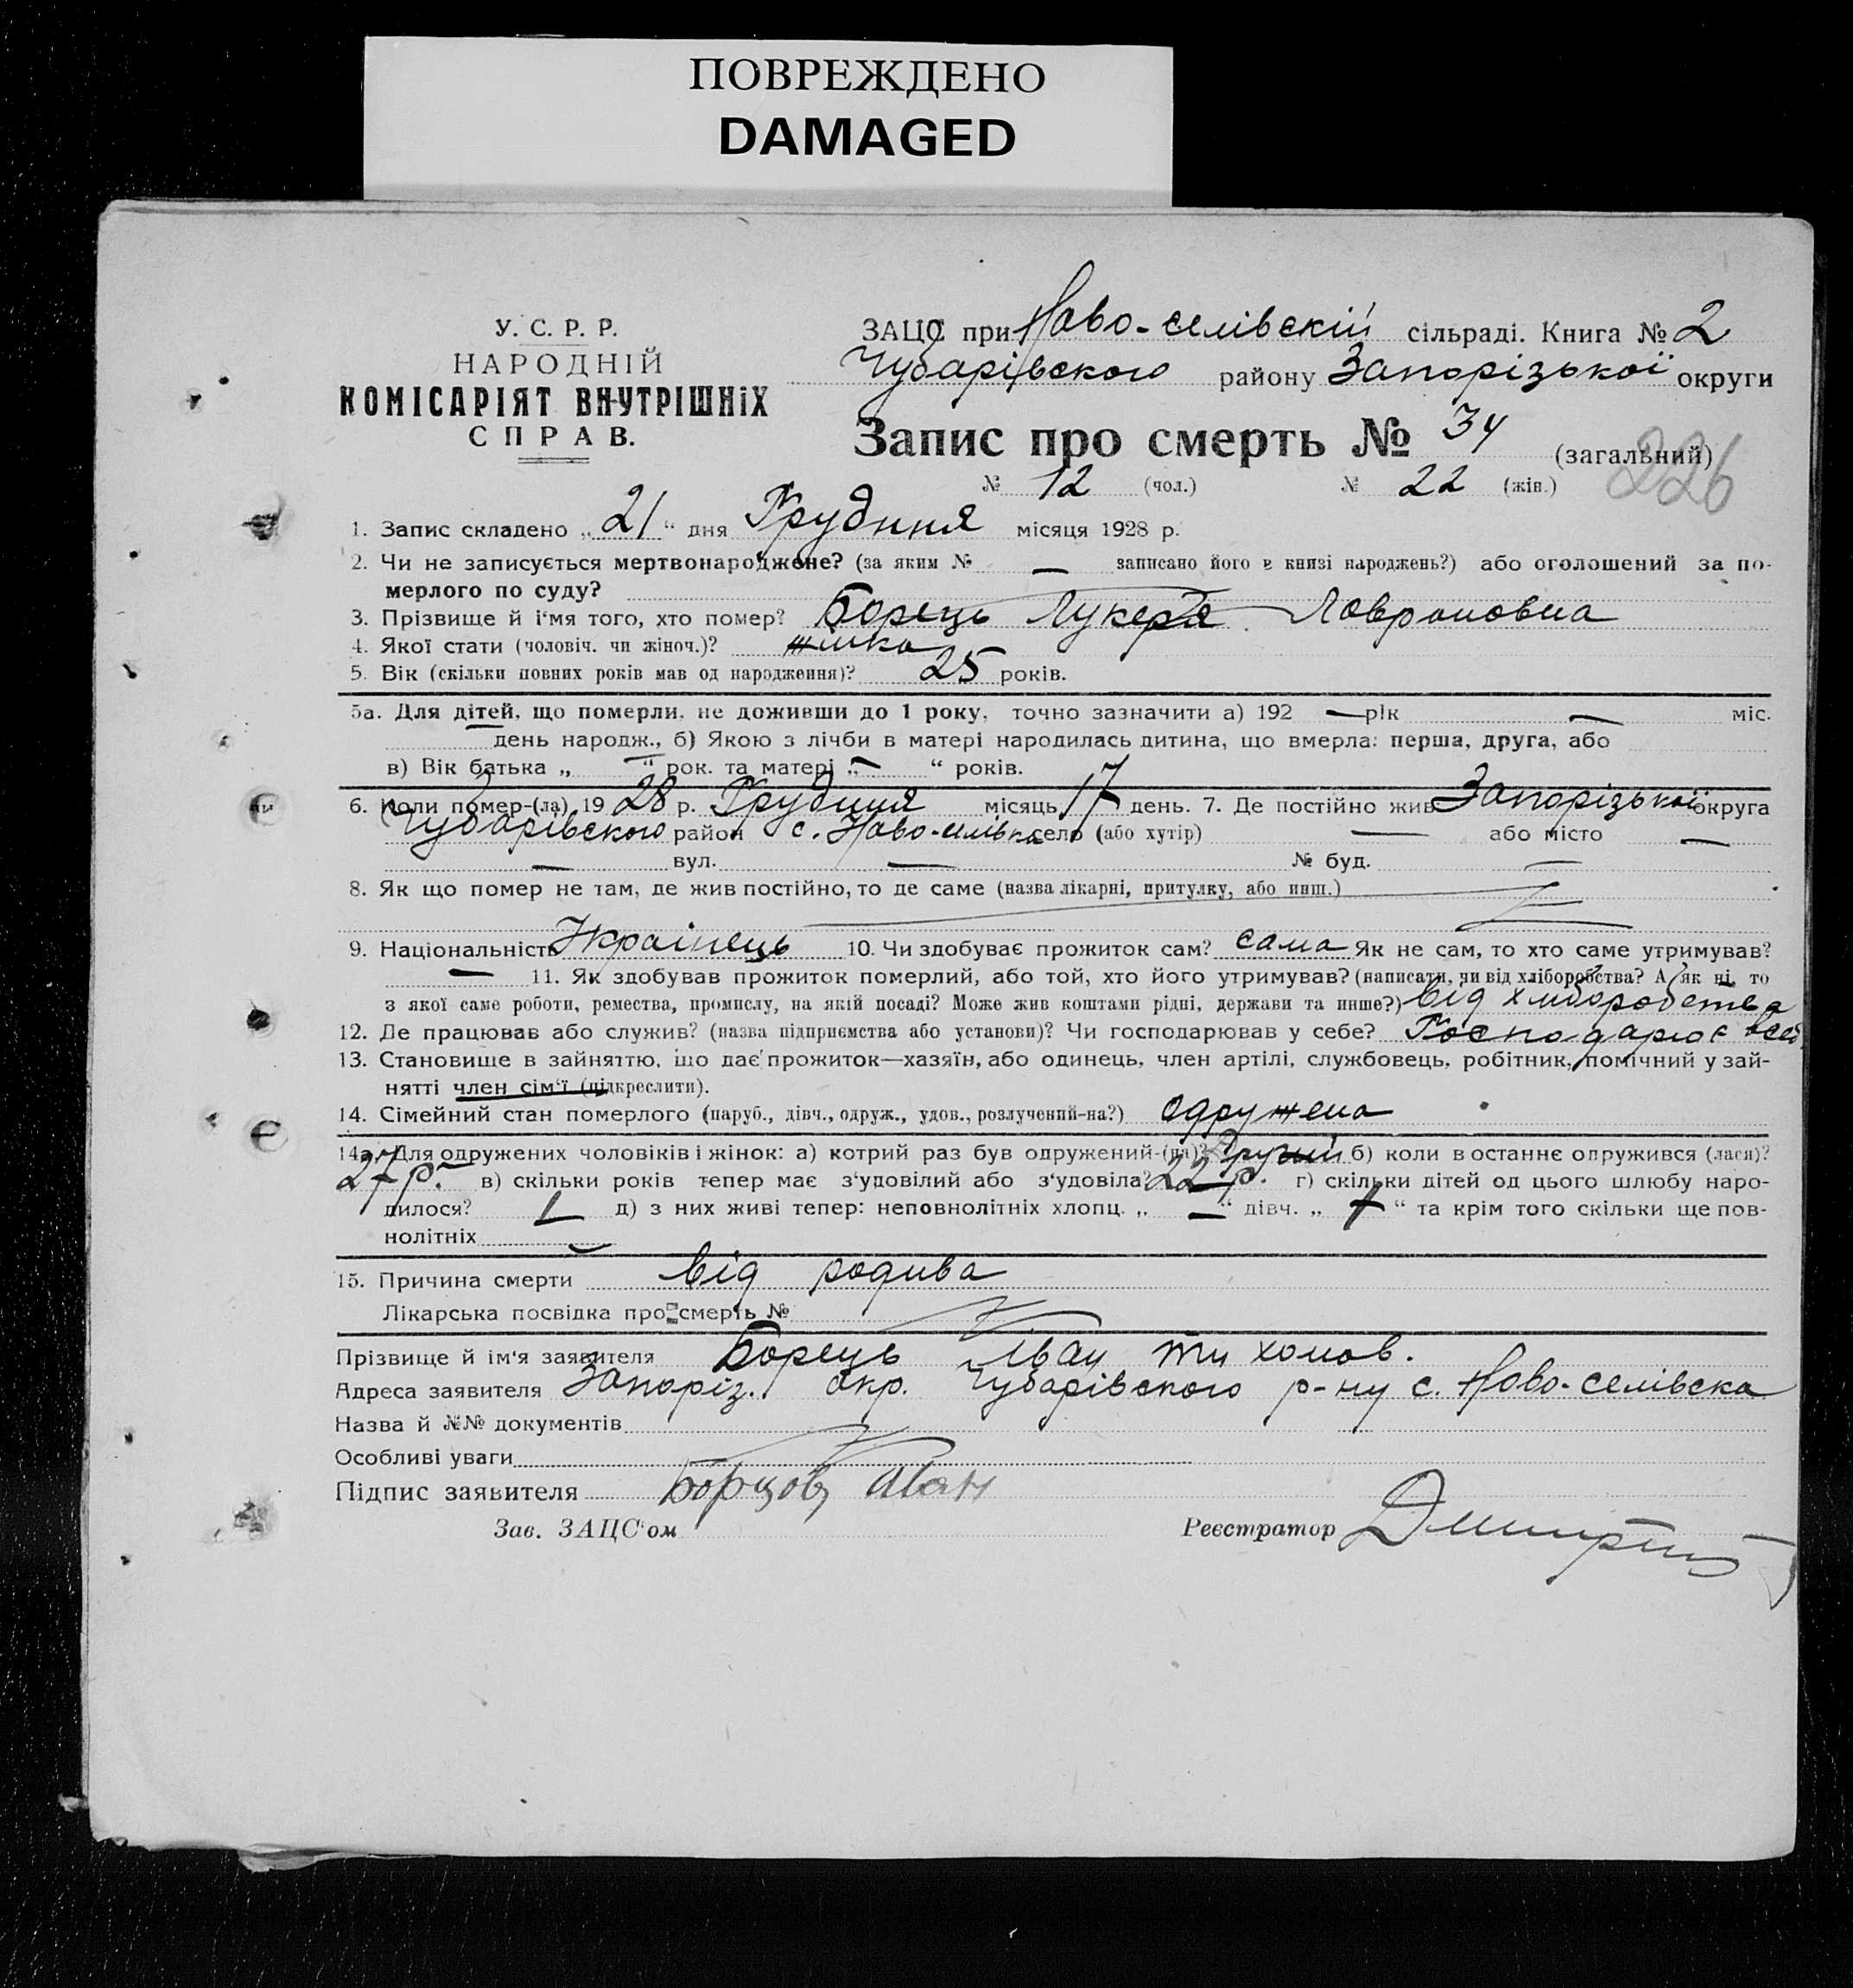 ПОВРЕЖДЕНО
DAMAGED
У. С. Р. Р.
НАРОДНІЙ
КОМІСАРІЯТ ВНУТРІШНІХ
СПРАВ.
ЗАЦС при Ново-селівскій сільраді. Книга № 2
Чубарівского району Запорізької округи
Запис про смерть № 34 (загальний)
226
№ 12 (чол.) № 22 (жін.)
1. Запис складено „ 21 “ дня Грудння місяця 1928 р.
2. Чи не записується мертвонароджене? (за яким № — записано його в книзі народжень?) або оголошений за по-
мерлого по суду?
3. Прізвище й і‘мя того, хто помер? Борець Лукерія Лавроновна
4. Якої стати (чоловіч. чи жіноч.)? жінка
5. Вік (скільки повних років мав од народження)? 25 років.
5а. Для дітей, що померли, не доживши до 1 року, точно зазначити а) 192 — рік — міс.
день народж., б) Якою з лічби в матері народилась дитина, що вмерла: перша, друга, або
в) Вік батька „ — “ рок. та матері „ — “ років.
6. Коли помер-(ла) 19 28 р. Грудння місяць 17 день. 7. Де постійно жив Запорізької округа
Чубарівского район с. Ново-селівка село (або хутір) — або місто —
— вул. — № буд. —
8. Як що помер не там, де жив постійно, то де саме (назва лікарні, притулку, або инш.)
9. Національність Українець 10. Чи здобуває прожиток сам? сама Як не сам, то хто саме утримував?
— 11. Як здобував прожиток померлий, або той, хто його утримував? (написати, чи від хліборобства? А як ні, то
з якої саме роботи, ремества, промислу, на якій посаді? Може жив коштами рідні, держави та инше?) від хліборобства
12. Де працював або служив? (назва підприємства або установи)? Чи господарював у себе? Господарює
13. Становище в зайняттю, що дає прожиток—хазяїн, або одинець, член артілі, службовець, робітник, помічний у зай-
нятті член сім‘ї (підкреслити).
14. Сімейний стан померлого (паруб., дівч., одруж., удов., розлучений-на?) одружена
14а. Для одружених чоловіків і жінок: а) котрий раз був одружений-(на)? другий б) коли востаннє одружився (лася)?
27 р. в) скільки років тепер має з‘удовілий або з‘удовіла? 22 р. г) скільки дітей од цього шлюбу наро-
дилося? 1 д) з них живі тепер: неповнолітніх хлопц. „ — “ дівч. „ “ та крім того скільки ще пов-
нолітніх —
15. Причина смерти від родива
Лікарська посвідка про смерть №
Прізвище й ім‘я заявителя Борець Іван Тихонов.
Адреса заявителя Запоріз. окр. Чубарівского р-ну с. Ново-селівска
Назва й №№ документів
Особливі уваги
Підпис заявителя Борцов Иван
Зав. ЗАЦС‘ом Реєстратор